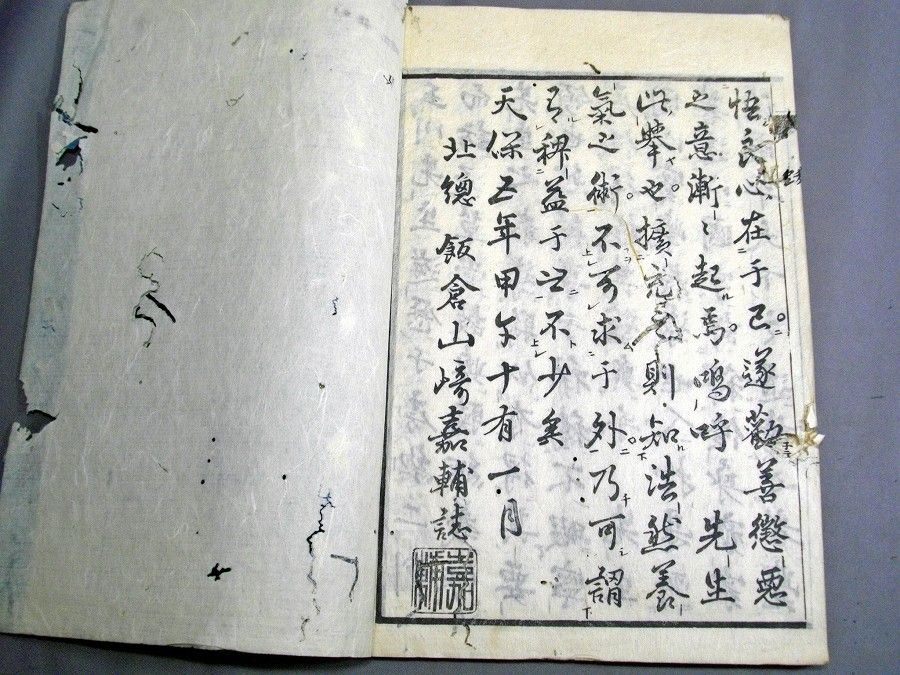 悟良心在于己遂勸善懲悪
之意漸〻起焉嗚呼先生
此挙也擴充之則知浩然養
氣之術不可求于外乃可謂
有稗益于世不少矣
天保五年甲午十有一月
北總飯倉山﨑嘉輔誌